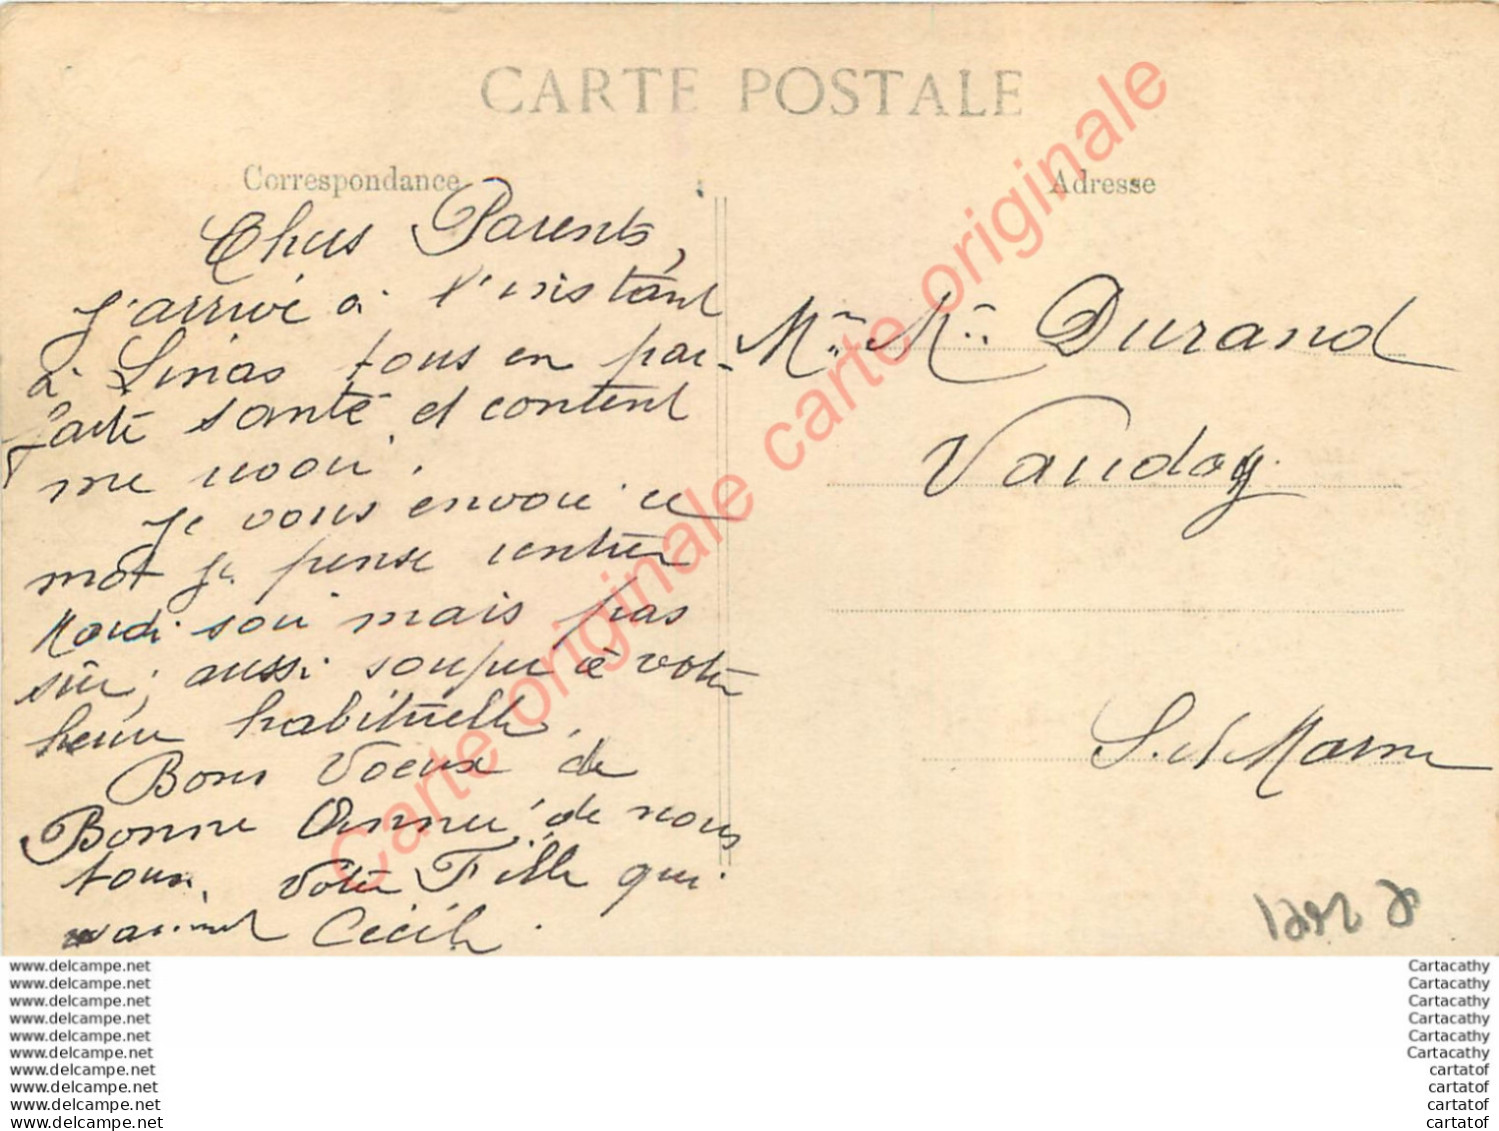 CARTE POSTALE
Correspondance
Chers Parents,
J'arrive à l'instant
à Linas tous en par-
faite santé et content
me voir.
Je vous envoie ce
mot je pense rentrer
Mardi soir mais pas
sûr; aussi souper à votre
heure habituelle.
Bons Voeux de
Bonne Année, de nous
tous. Votre Fille qui
vous aime Cécile.
Adresse
Mr Me Durand
Vaudoy
S. et Marne
Carte originale carte originale Carte originale
www.delcampe.net
www.delcampe.net
www.delcampe.net
www.delcampe.net
www.delcampe.net
www.delcampe.net
www.delcampe.net
www.delcampe.net
www.delcampe.net
www.delcampe.net
Cartacathy
Cartacathy
Cartacathy
Cartacathy
Cartacathy
Cartacathy
cartatof
cartatof
cartatof
cartatof